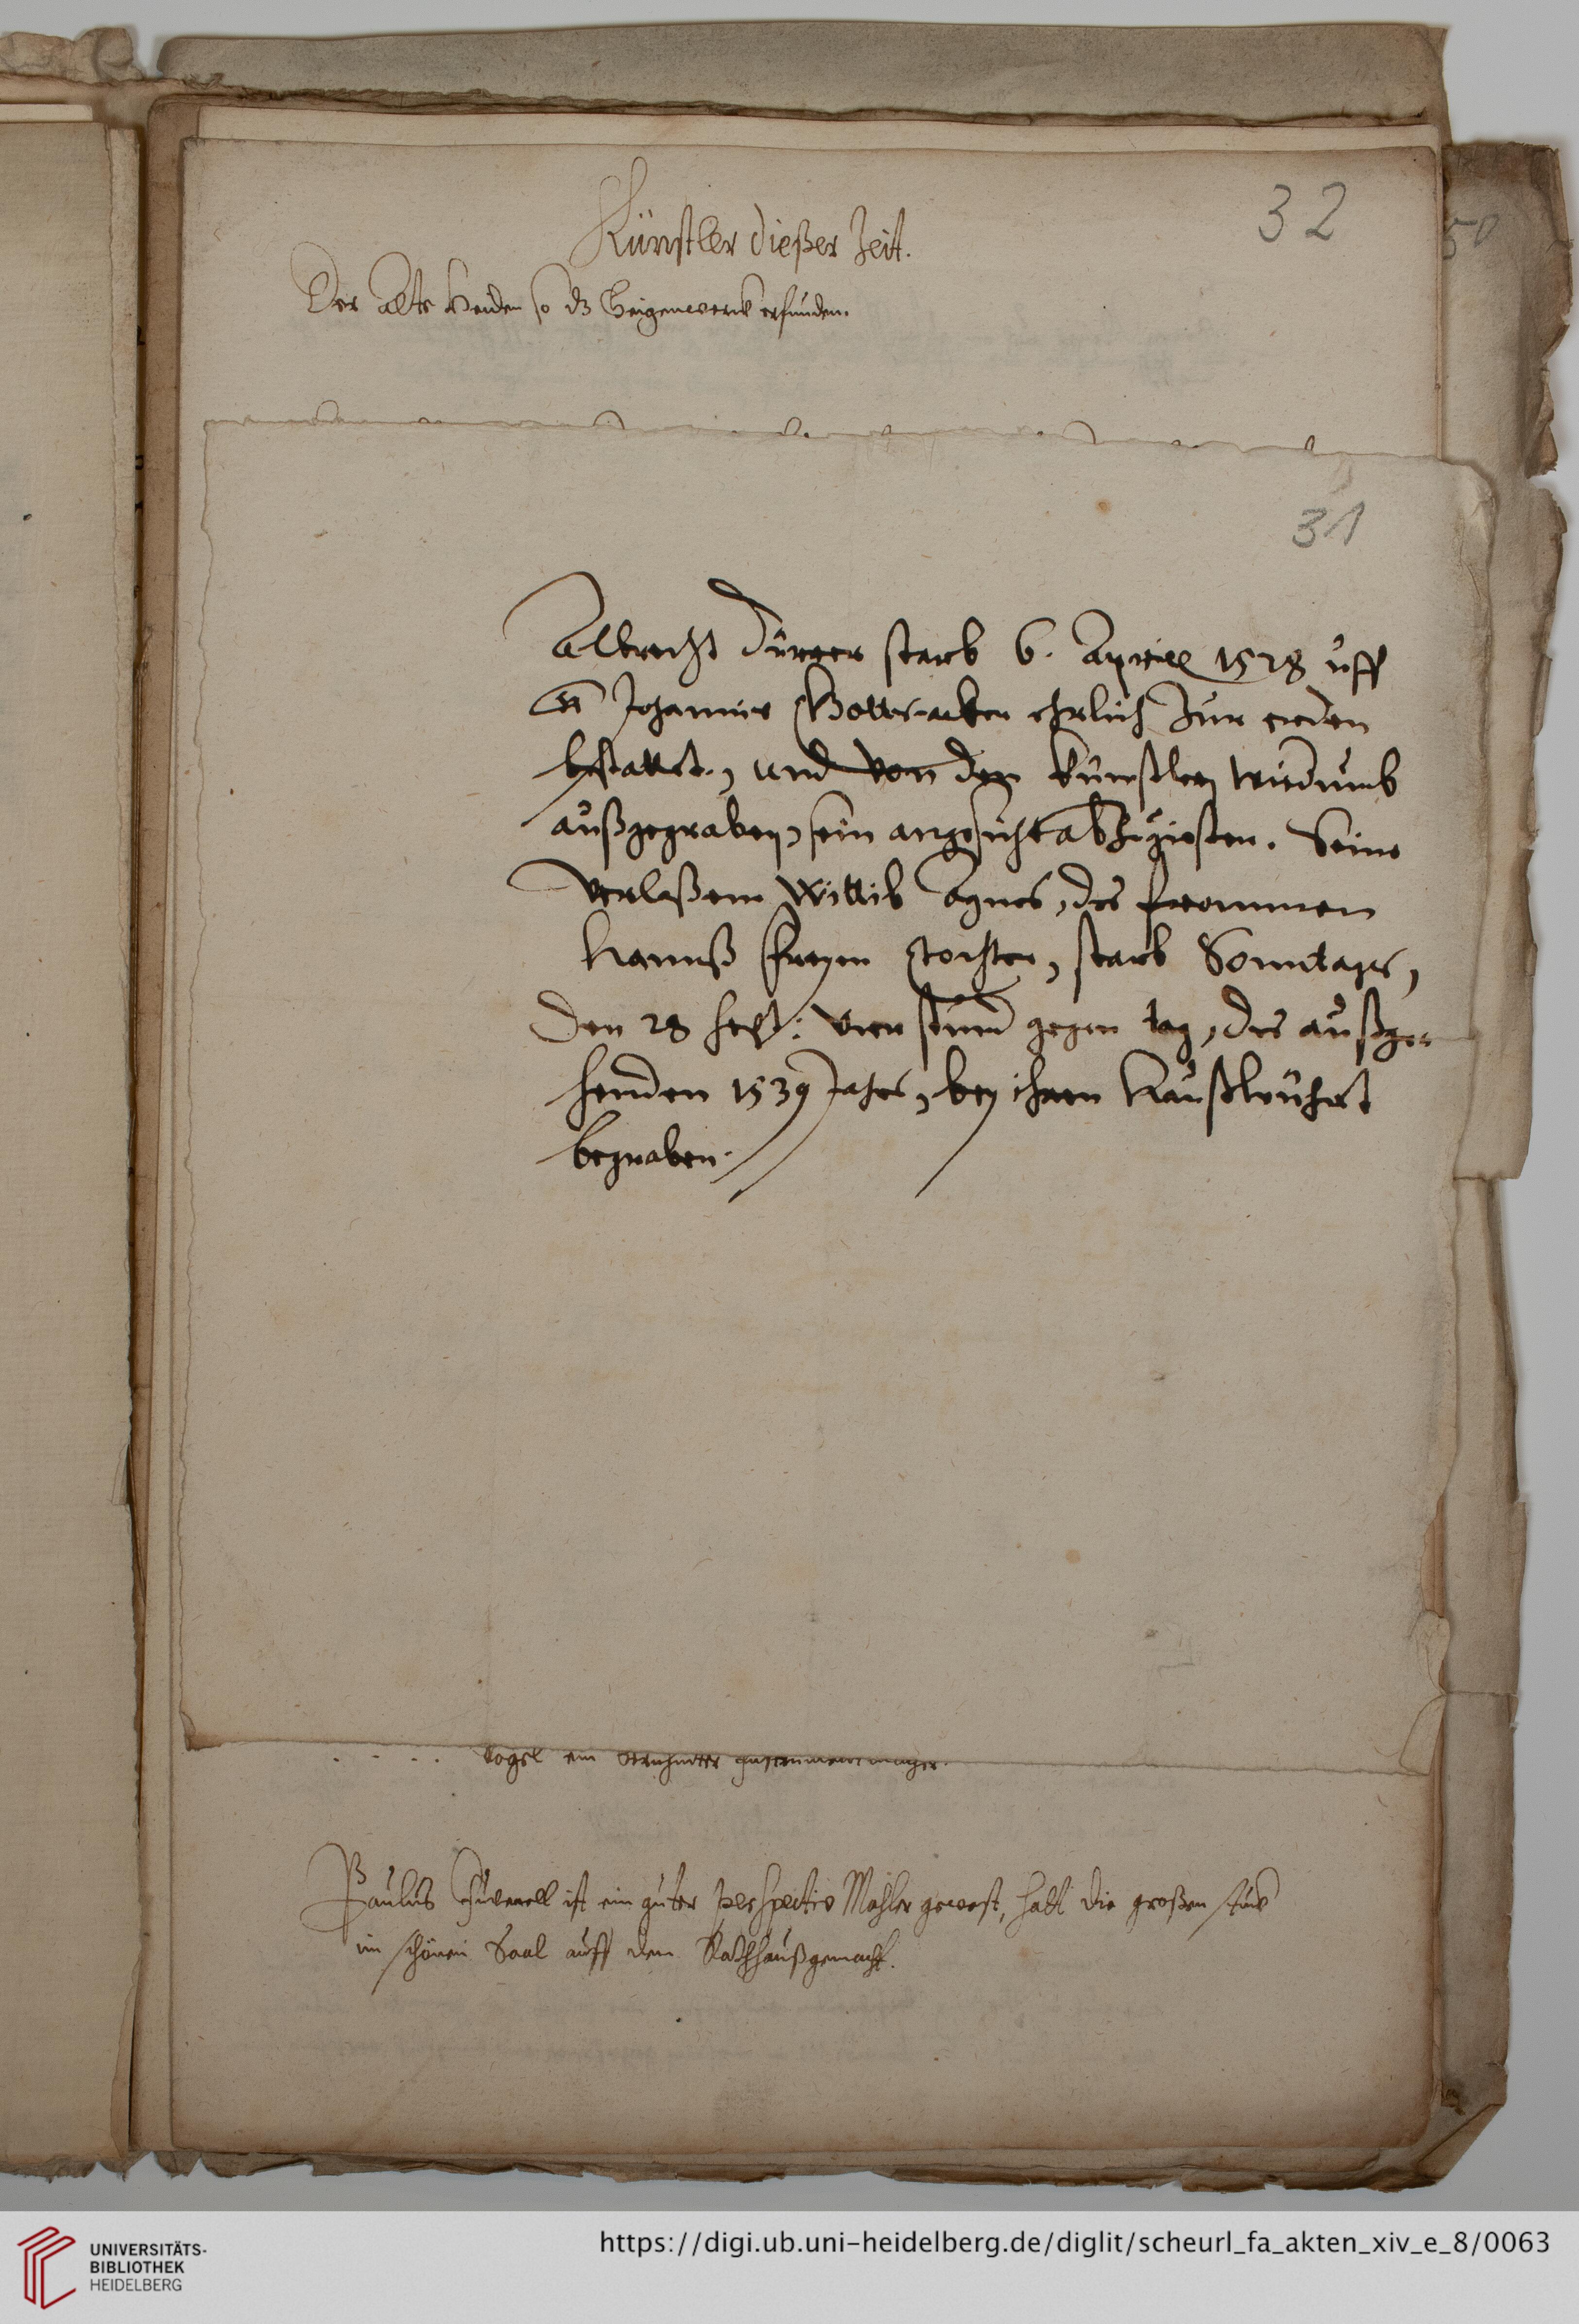 32
50
Künstler dießer Zeit.
Der alte Heiden so dz Geigenwerck erfunden.
31
Albrecht Dürer starb 6. Apprill 1528 uff
Johannis Gottsacker ehrlich zur erden
bestattet, und von den künstlern widrumb
außgegraben, sein angesicht abzugießen. Seine
verlaßene Wittib Agnes, des frommen
Hannß Freyen tochter, starb Sonntags,
den 28 vier stund gegen tag, des außge-
henden 1539 Jahrs, bey ihrem Haußwührt
begraben.
. . . . Vogel ein berühmter
Paulus Juvenell ist ein guter perspectiv Mahler gewest, hatt die großen stück
im schönen Saal auff dem Rathhauß gemacht.
UNIVERSITÄTS-
BIBLIOTHEK
HEIDELBERG
https://digi.ub.uni-heidelberg.de/diglit/scheurl_fa_akten_xiv_e_8/0063